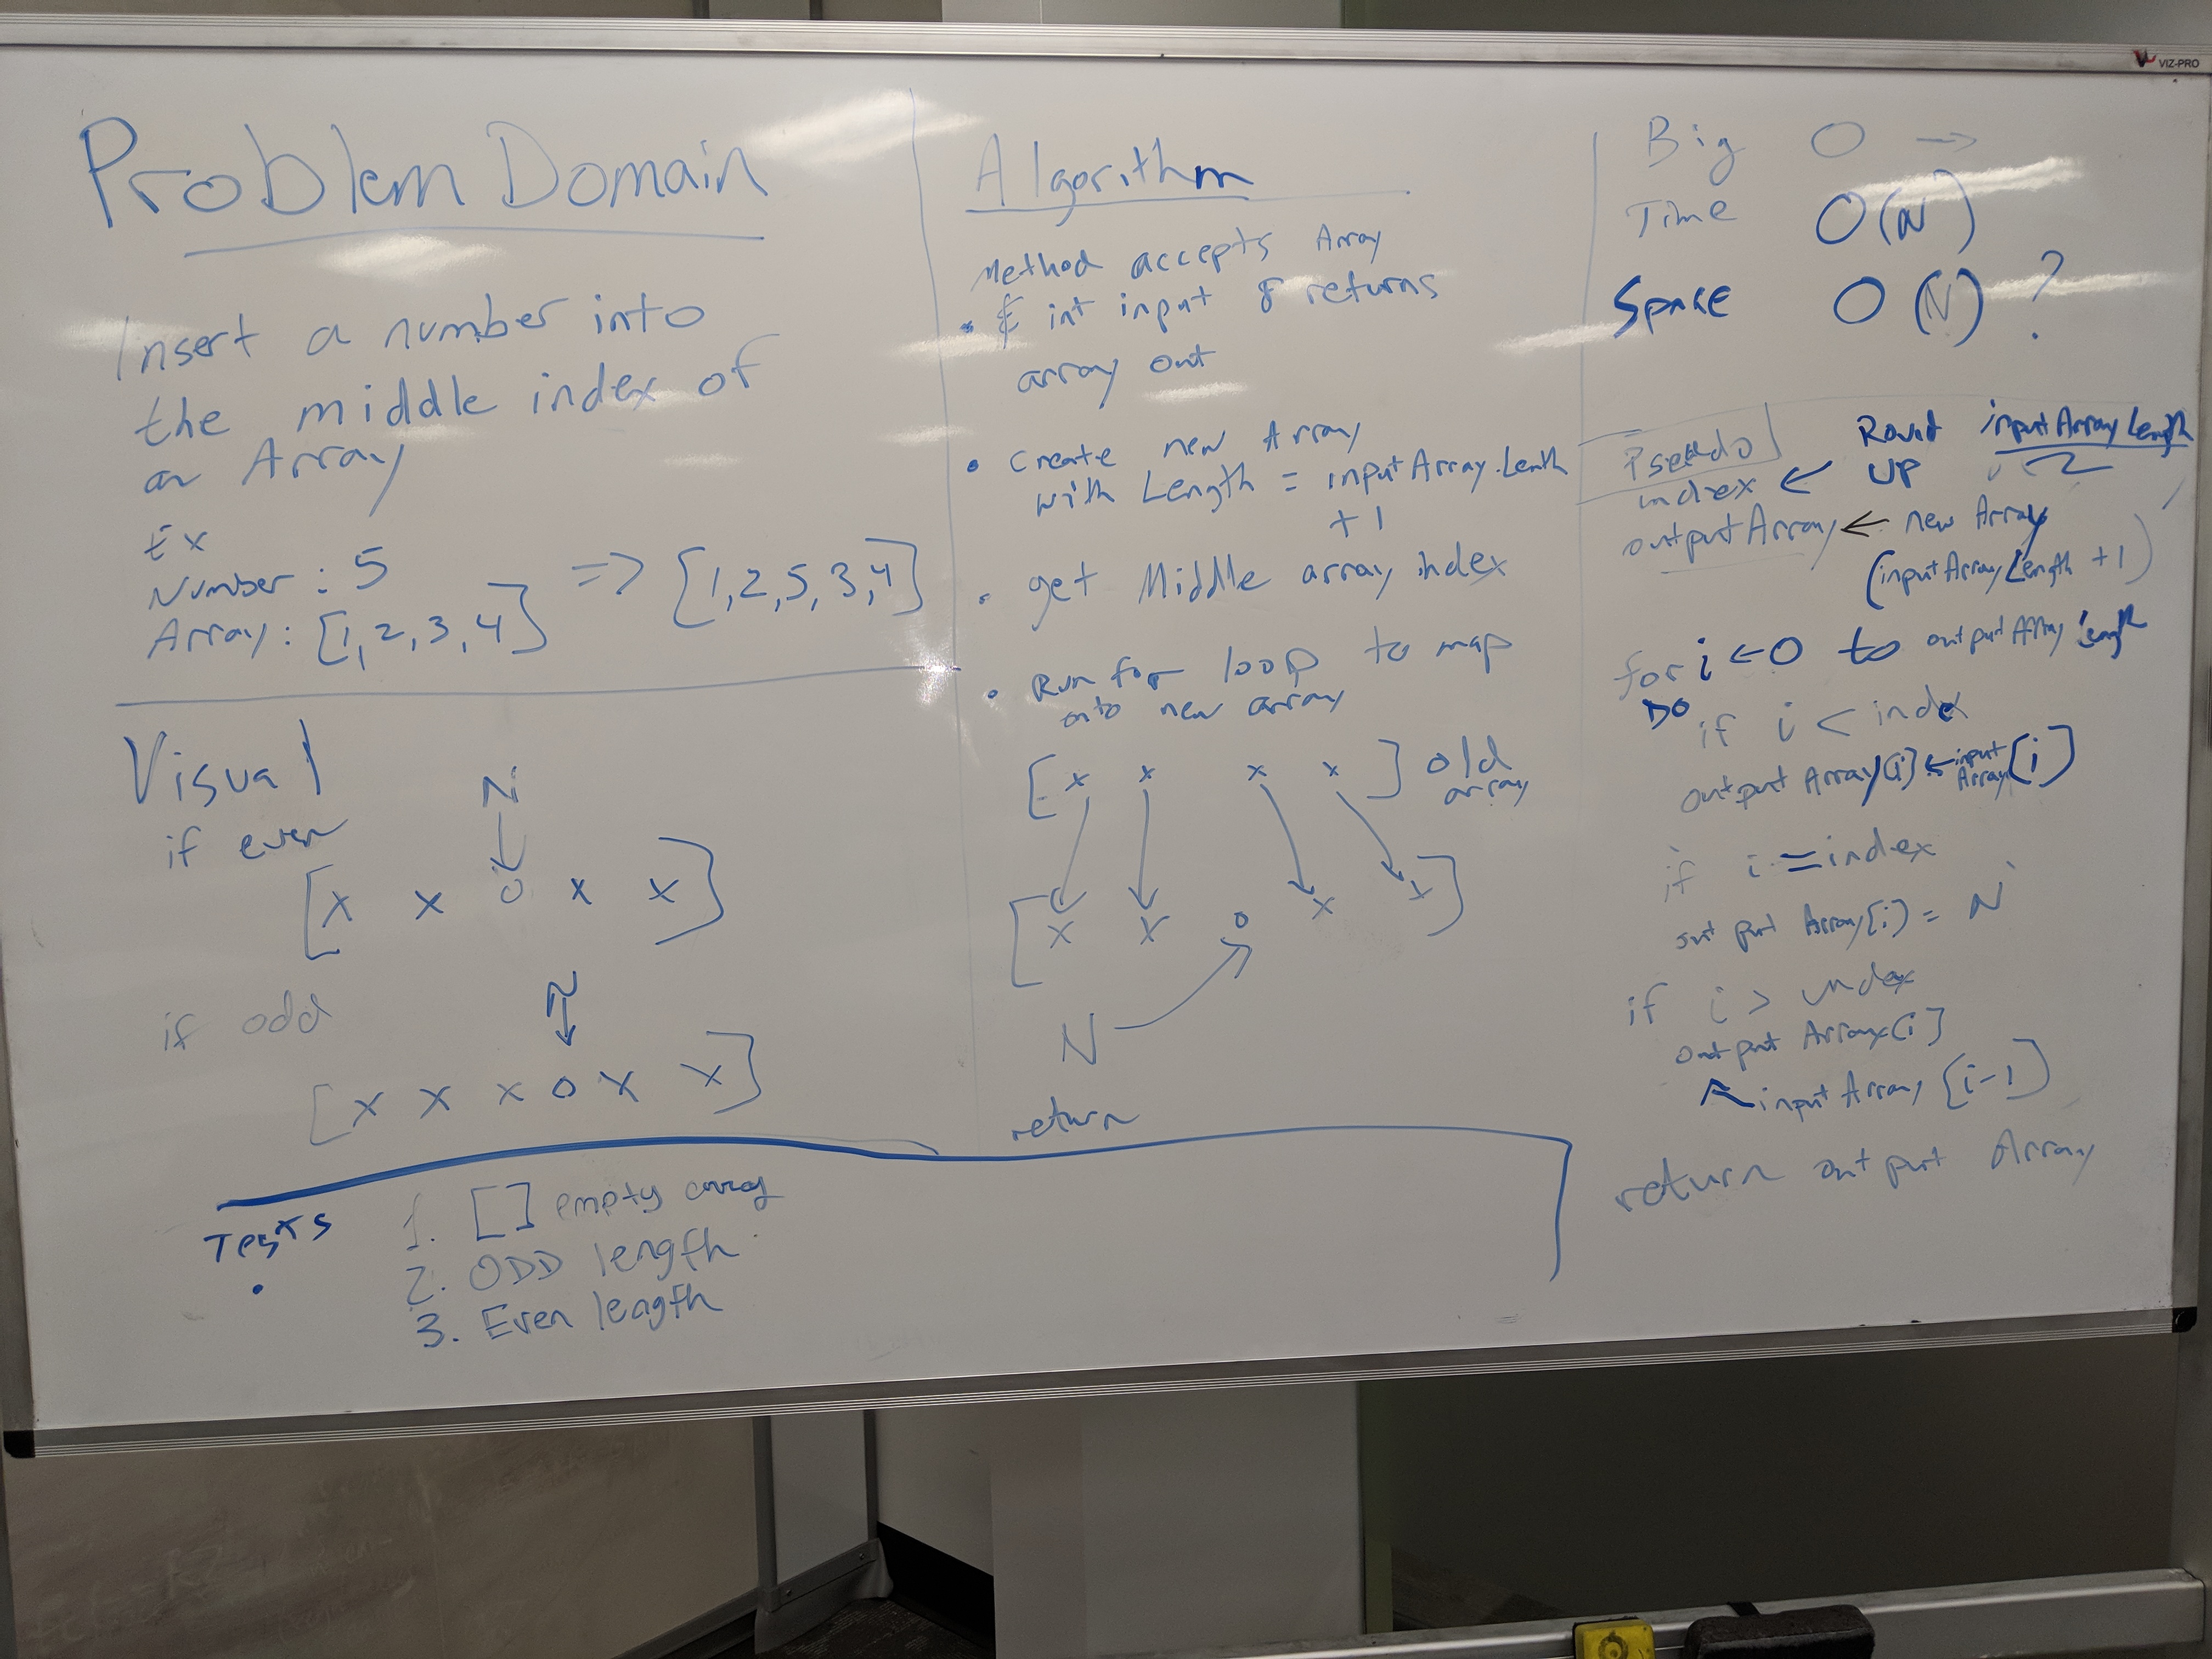 VIZ-PRO
Problem Domain
Insert a number into
the middle index of
an Array
Ex
Number : 5
Array : [1, 2, 3, 4] => [1, 2, 5, 3, 4]
Visual
if even
N
[x x o x x]
if odd
N
[x x x o x x]
Tests
1. [] empty array
2. ODD length
3. Even length
Algorithm
Method accepts Array
• & int input & returns
array out
• Create new Array
with Length = inputArray.Lenth
+ 1
• get Middle array index
• Run for loop to map
onto new array
[x x x x] old
array
[x x o x x]
N
return
Big O →
Time O(N)
Space O(N) ?
Pseudo
index ← Round UP inputArray Length / 2
outputArray ← new Array
(inputArray Length + 1)
for i ← 0 to outputArray length
DO
if i < index
output Array[i] ← input Array[i]
if i = index
output Array[i] = N
if i > index
output Array[i]
← inputArray [i-1]
return output Array